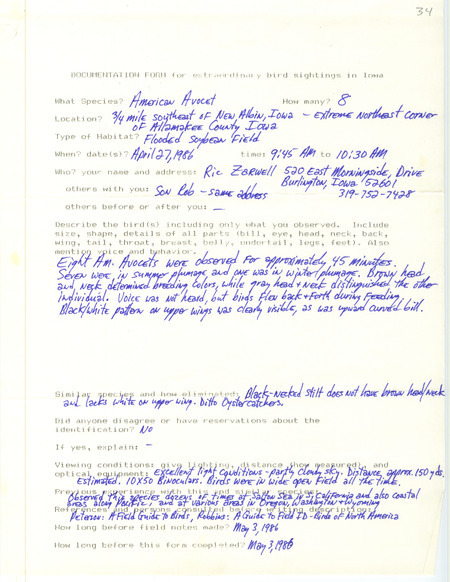 34
DOCUMENTATION FORM for extraordinary bird sightings in Iowa
What Species? American Avocet How many? 8
Location? 3/4 mile southeast of New Albin, Iowa - extreme Northeast corner
of Allamakee County Iowa
Type of Habitat? Flooded Soybean Field
When? date(s)? April 27, 1986 time: 9:45 AM to 10:30 AM
Who? your name and address: Ric Zarwell 520 East Morningside, Drive
Burlington, Iowa 52601
others with you: Son Rob - same address 319-752-7428
others before or after you: -
Describe the bird(s) including only what you observed. Include
size, shape, details of all parts (bill, eye, head, neck, back,
wing, tail, throat, breast, belly, undertail, legs, feet). Also
mention voice and behavior.
Eight Am. Avocets were observed for approximately 45 minutes.
Seven were in summer plumage and one was in winter plumage. Brown head
and neck determined breeding colors, while gray head + neck distinguished the other
individual. Voice was not heard, but birds flew back + forth during feeding.
Black/white pattern on upper wings was clearly visible, as was upward curved bill.
Similar species and how eliminated: Black-necked Stilt does not have brown head/neck
and lacks white on upper wing. Ditto Oystercatchers.
Did anyone disagree or have reservations about the
identification? No
If yes, explain: -
Viewing conditions: give lighting, distance (how measured), and
optical equipment: Excellent light conditions - partly cloudy sky. Distance, approx. 150 yds.
Estimated. 10X50 Binoculars. Birds were in wide open field all the time.
Previous experience with this and similar species:
Observed this species dozens of times at Salton Sea in S. California and also coastal
areas along Pacific and at various areas in Oregon, Washington + Wyoming
References and persons consulted before writing description:
Peterson: A Field Guide to Birds, Robbins: A Guide to Field ID - Birds of North America
How long before field notes made? May 3, 1986
How long before this form completed? May 3, 1986